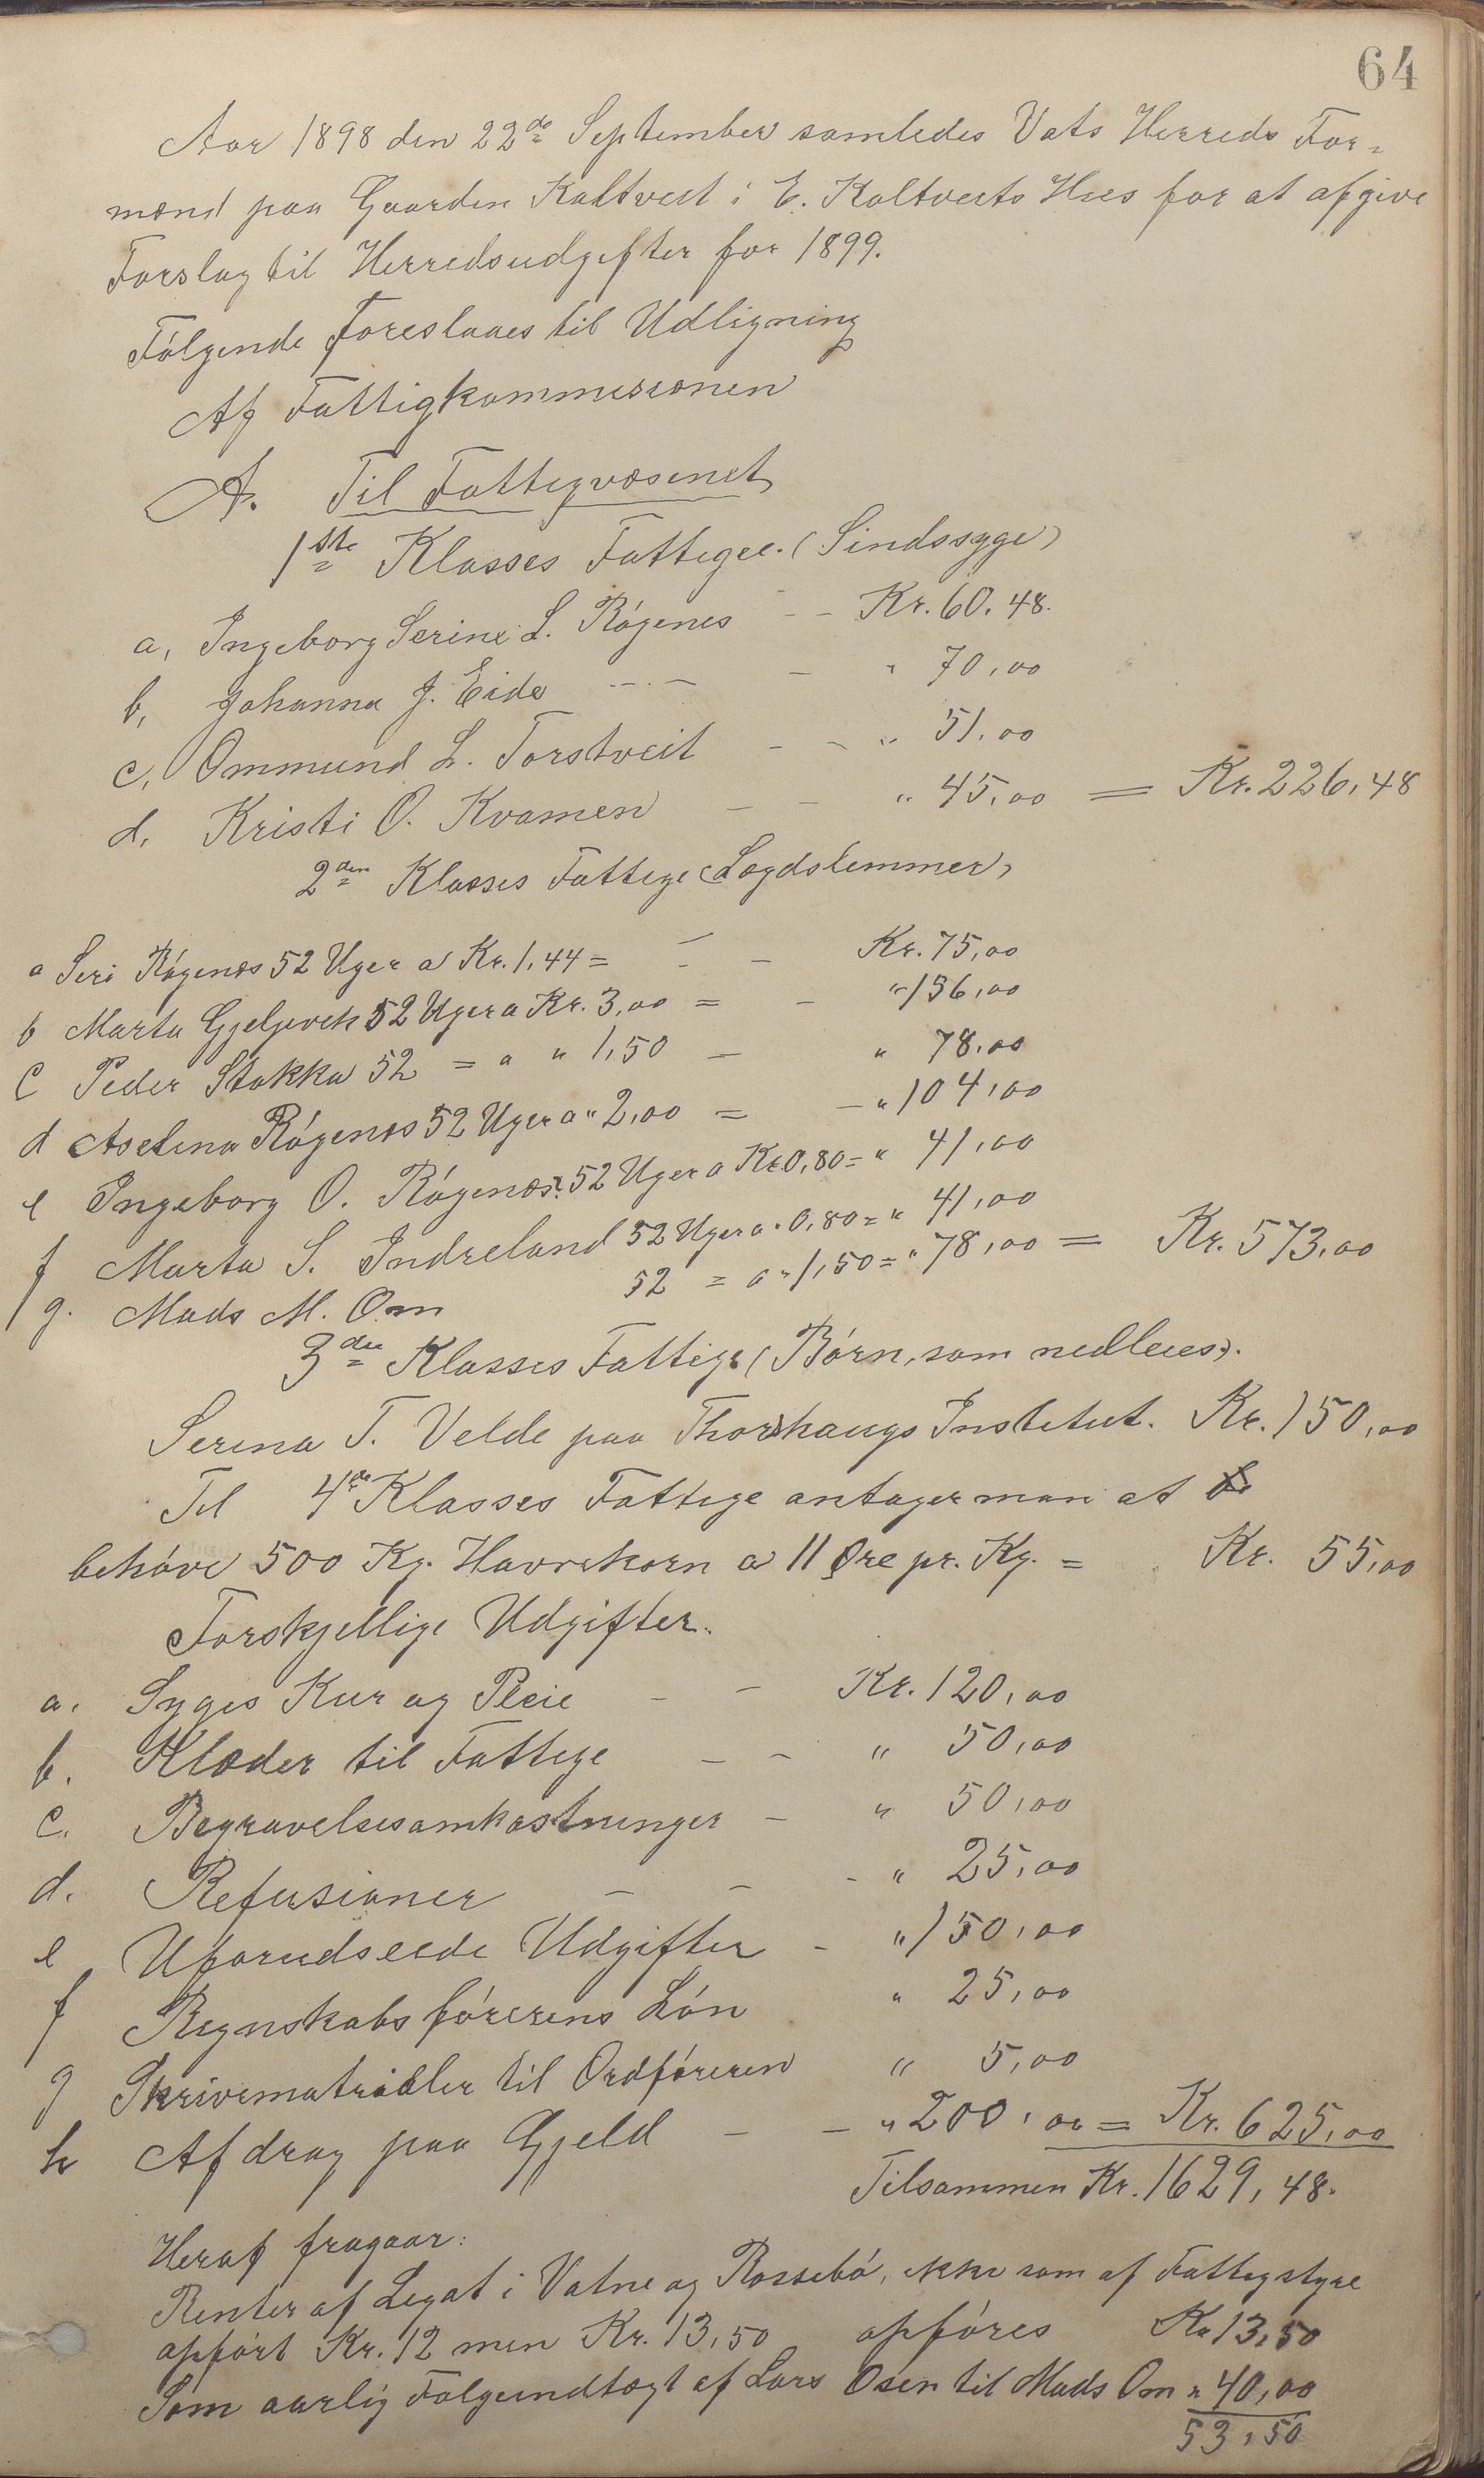 64
Aar 1898 den 22de September samledes Vats Herreds For=
mænd paa Gaarden Kaltveit i E. Kaltveits Hus for at afgive
Forslag til Herredsudgifter for 1899.
Følgende foreslaaes til Udligning
Af Fattigkommisionen
A. Til Fattigvæsenet
1ste Klasses Fattige. (Sindssyge)
a, Ingeborg Serine L. Røgenes - - Kr. 60,48.
b, Johanna J. Eide - - - " 70,00
c, Ommund L. Torstveit - - " 51,00
d, Kristi O. Kvamen - - " 45,00 = Kr. 226,48
2den Klasses Fattige (Lægdslemmer)
a Seri Røgenes 52 Uger a Kr. 1,44 = - - Kr. 75,00
b Marta Gjeljevik 52 Uger a Kr. 3,00 = - " 156,00
c Peder Stakka 52 = a " 1,50 - " 78,00
d Aselena Røgenes 52 Uger a " 2,00 = - " 104,00
e Ingeborg O. Røgenes. 52 Uger a Kr. 0,80 = " 41,00
f Marta S. Indreland 52 Uger a " 0,80 = " 41,00
g. Mads M. Om 52 = a " 1,50 = " 78,00 = Kr. 573,00
3die Klasses Fattige (Børn, som nedlees).
Serina T. Velde paa Thorshaugs Institut. Kr. 150,00
Til 4de Klasses Fattige antager man at
behøve 500 Kg. Havrekorn a 11 Øre pr. Kg. = Kr. 55,00
Forskjellige Udgifter.
a. Syges Kur og Pleie - - Kr. 120,00
b. Klæder til Fattige - - " 50,00
c. Begravelsesomkostninger - " 50,00
d. Refusioner - - - " 25,00
e Uforudseede Udgifter - " 150,00
f Regnskabsførerens Løn " 25,00
g Skrivematrialer til Ordføreren " 5,00
h Afdrag paa Gjeld - - " 200,00 = Kr. 625,00
Tilsammen Kr. 1629,48.
Heraf fragaar:
Renter af Legat i Vatne og Rossebø, ikke som af Fattigstyre
opført Kr. 12 men Kr. 13,50 opføres Kr 13,50
Som aarlig Følgeindtægt af Lars Osen til Mads Om " 40,00
53,50